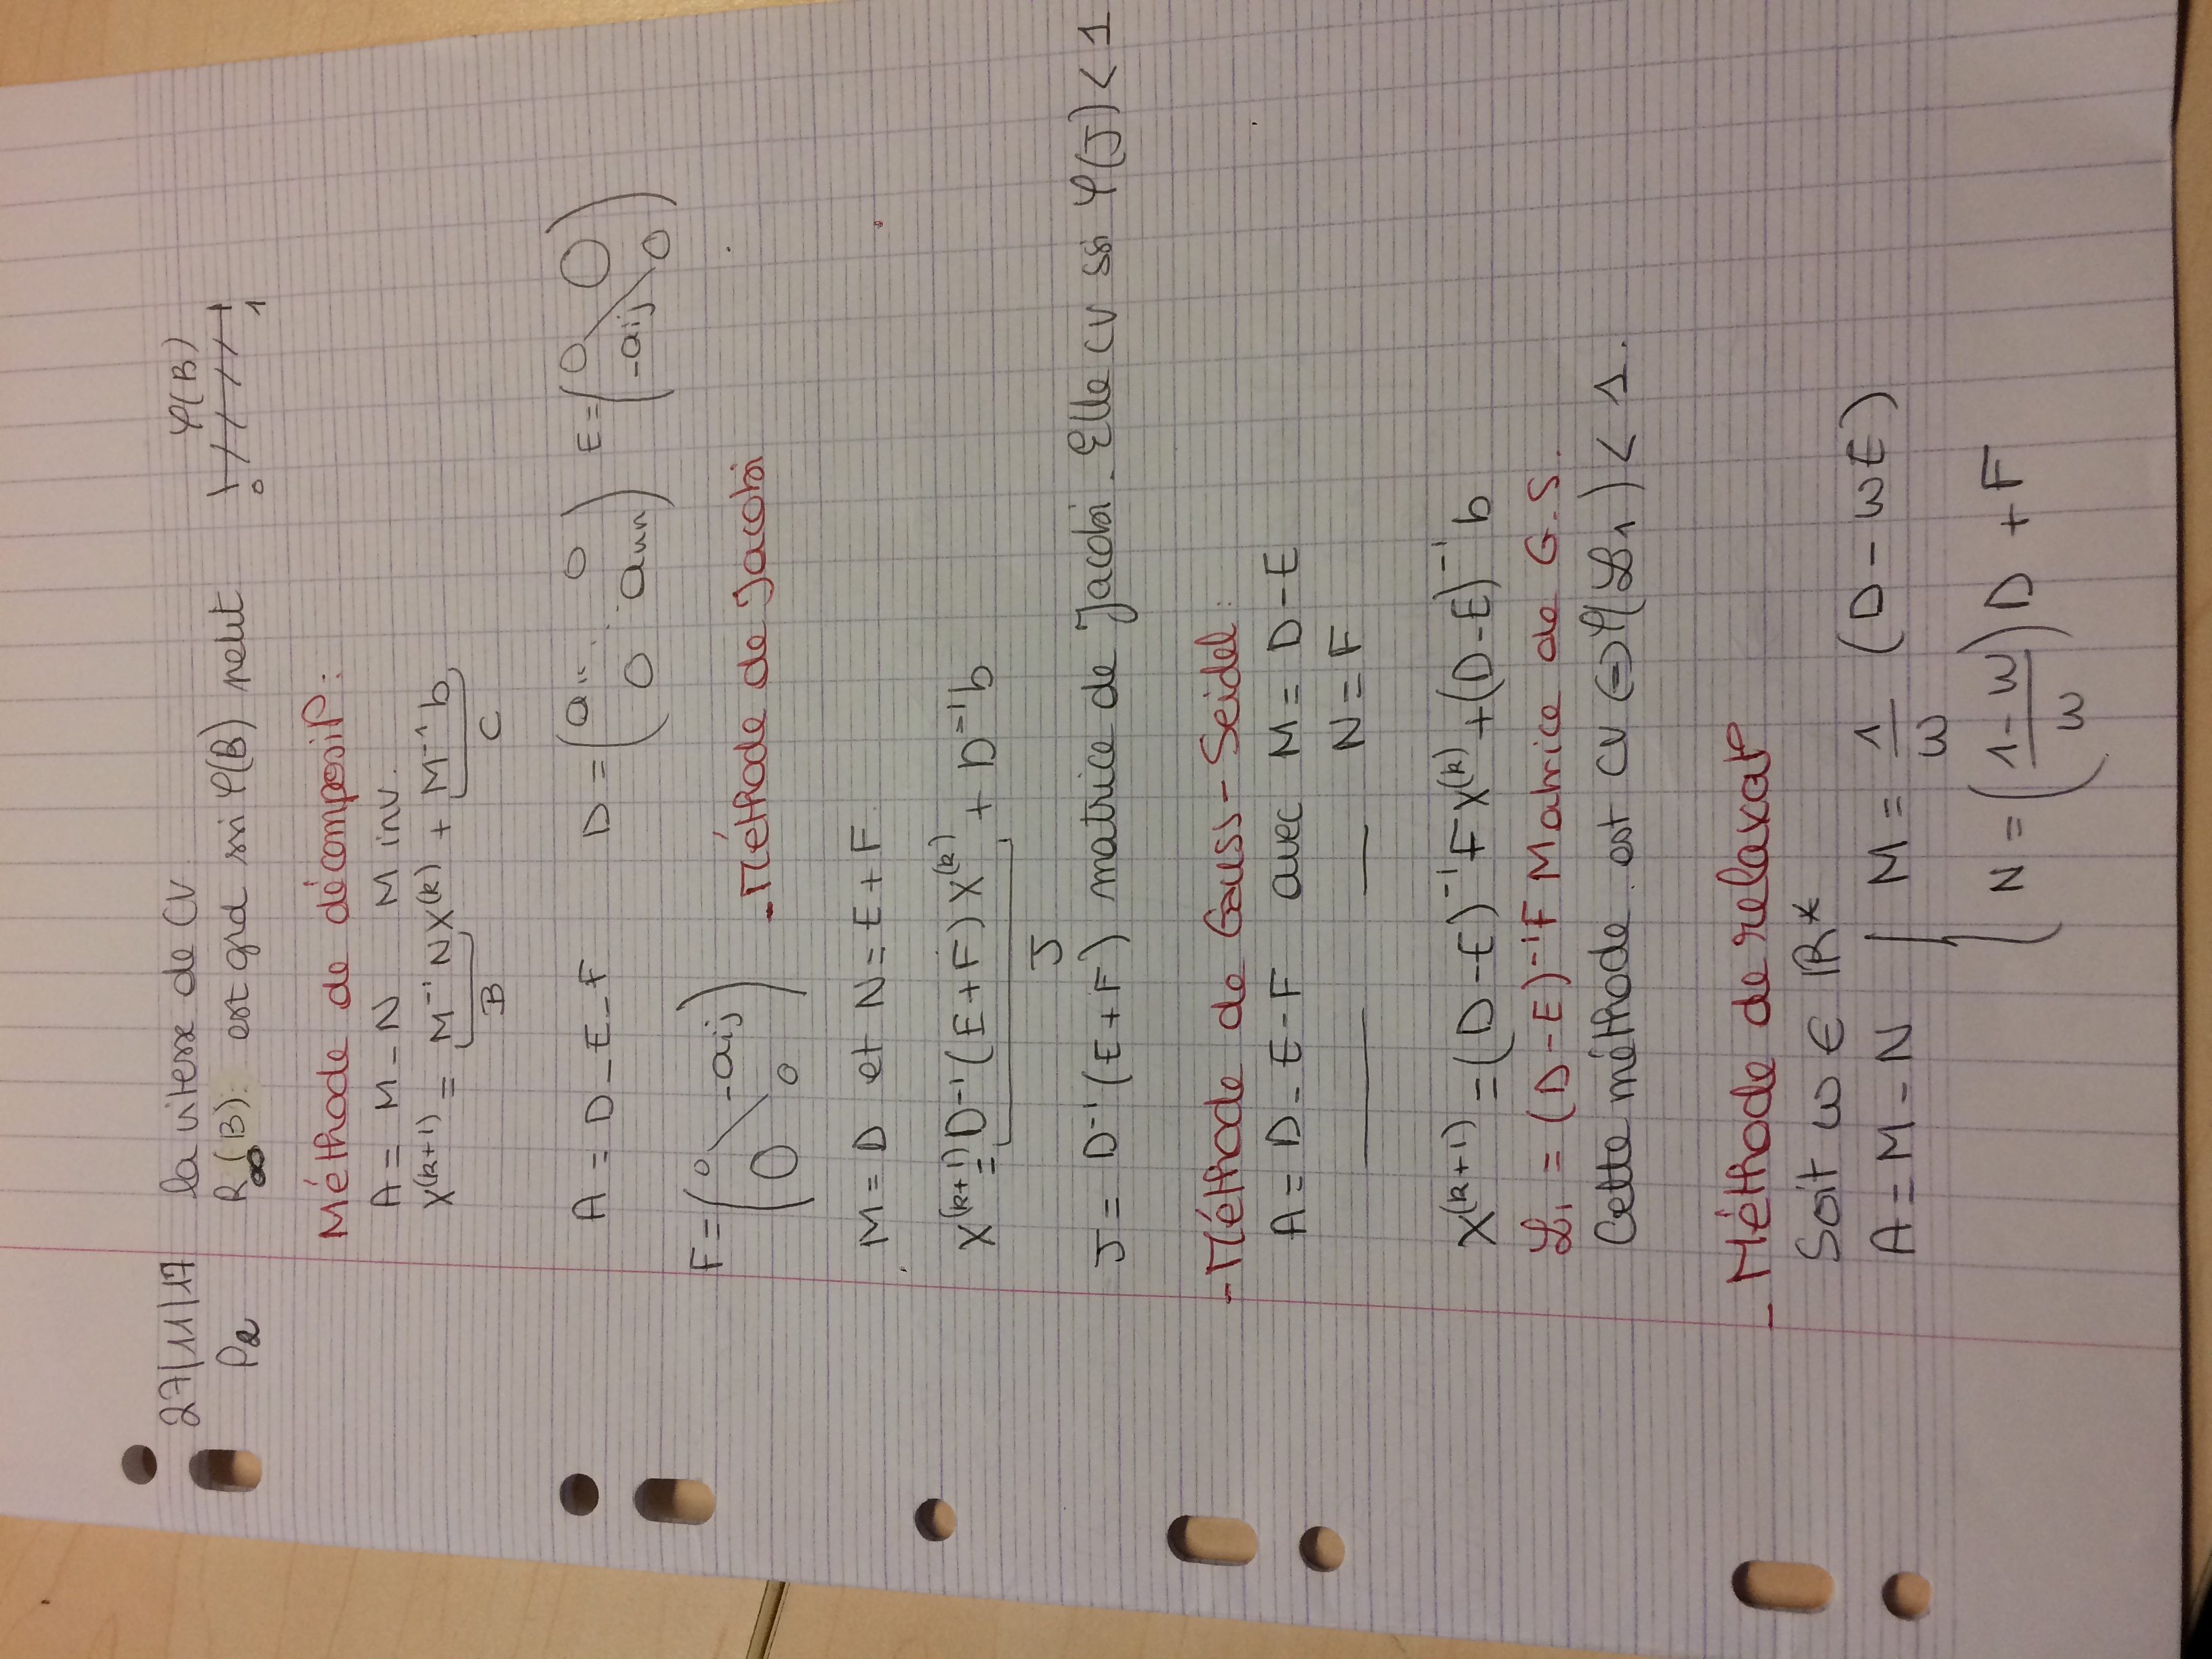 27/11/17 la vitesse de CV φ(B)
P2 R∞(B): est grd ssi φ(B) petit 0 1
Méthode de décomposit°:
A = M - N M inv.
X^(k+1) = M^-1 N X^(k) + M^-1 b
B C
A = D - E - F D = (a.. 0 0 ann) E = (0 0 -aij 0)
F = (0 -aij 0 0)
- Méthode de Jacobi
M = D et N = E + F
X^(k+1) = D^-1 (E + F) X^(k) + D^-1 b
J
J = D^-1 (E + F) matrice de Jacobi. Elle CV ssi φ(J) < 1
- Méthode de Gauss - Seidel :
A = D - E - F avec M = D - E
N = F
X^(k+1) = (D - E)^-1 F X^(k) + (D - E)^-1 b
ℒ1 = (D - E)^-1 F Matrice de G.S.
Cette méthode est CV ⇔ φ(ℒ1) < 1.
- Méthode de relaxat°
Soit w ∈ ℝ*
A = M - N { M = 1/w (D - wE)
N = (1-w/w) D + F